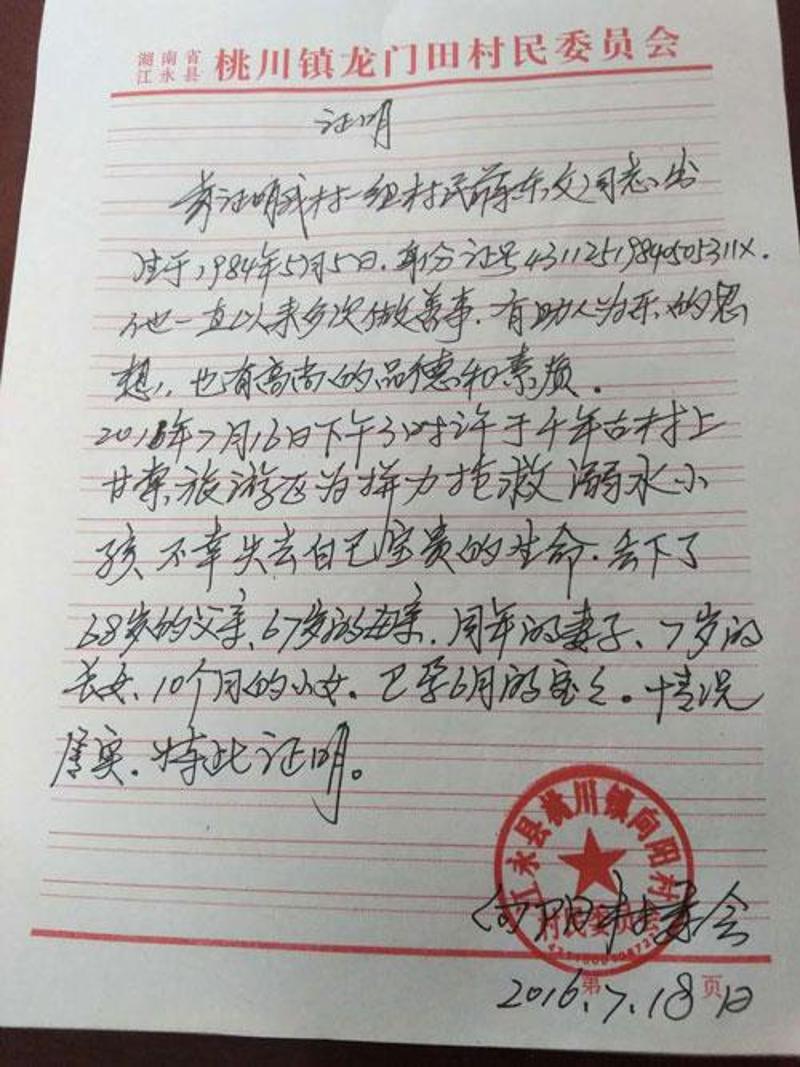 湖南省 江永县 桃川镇龙门田村民委员会
证明
兹证明我村一组村民蒋东文同志,出
生于1984年5月5日.身份证号43112519840505311X.
他一直以来多次做善事.有助人为乐的思
想,也有高尚的品德和素质.
2016年7月16日下午3时许于千年古村上
甘棠旅游区为拼力抢救溺水小
孩不幸失去自己宝贵的生命.丢下了
68岁的父亲、67岁的母亲.同年的妻子、7岁的
长女、10个月的小女。已孕6月的宝々。情况
属实.特此证明。
江永县桃川镇向阳村
村民委员会
向阳村委会
第 页
2016.7.18日